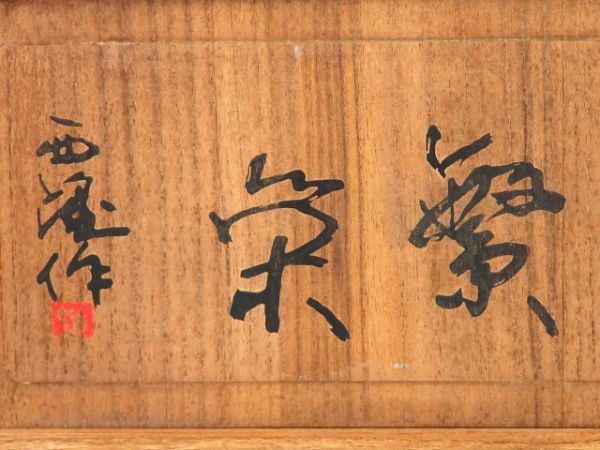 繁栄
西 作